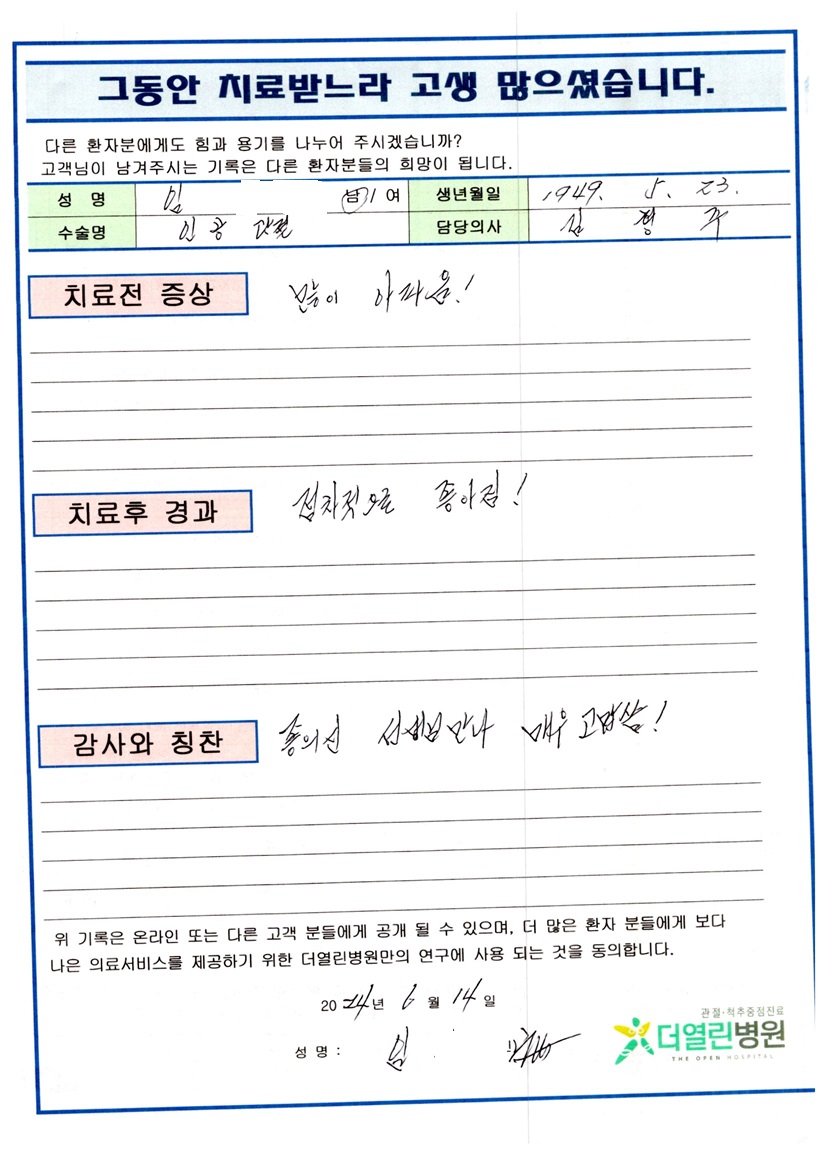 그동안 치료받느라 고생 많으셨습니다.
다른 환자분에게도 힘과 용기를 나누어 주시겠습니까?
고객님이 남겨주시는 기록은 다른 환자분들의 희망이 됩니다.
성 명 임 남 / 여 생년월일 1949. 5. 23.
수술명 인공 관절 담당의사 김 형 주
치료전 증상 많이 아파음!
치료후 경과 점차적으로 좋아짐!
감사와 칭찬 선생님만나 매우 고맙삼!
위 기록은 온라인 또는 다른 고객 분들에게 공개 될 수 있으며, 더 많은 환자 분들에게 보다
나은 의료서비스를 제공하기 위한 더열린병원만의 연구에 사용 되는 것을 동의합니다.
2024년 6월 14일
성 명 : 임
관절·척추중점진료
더열린병원
THE OPEN HOSPITAL